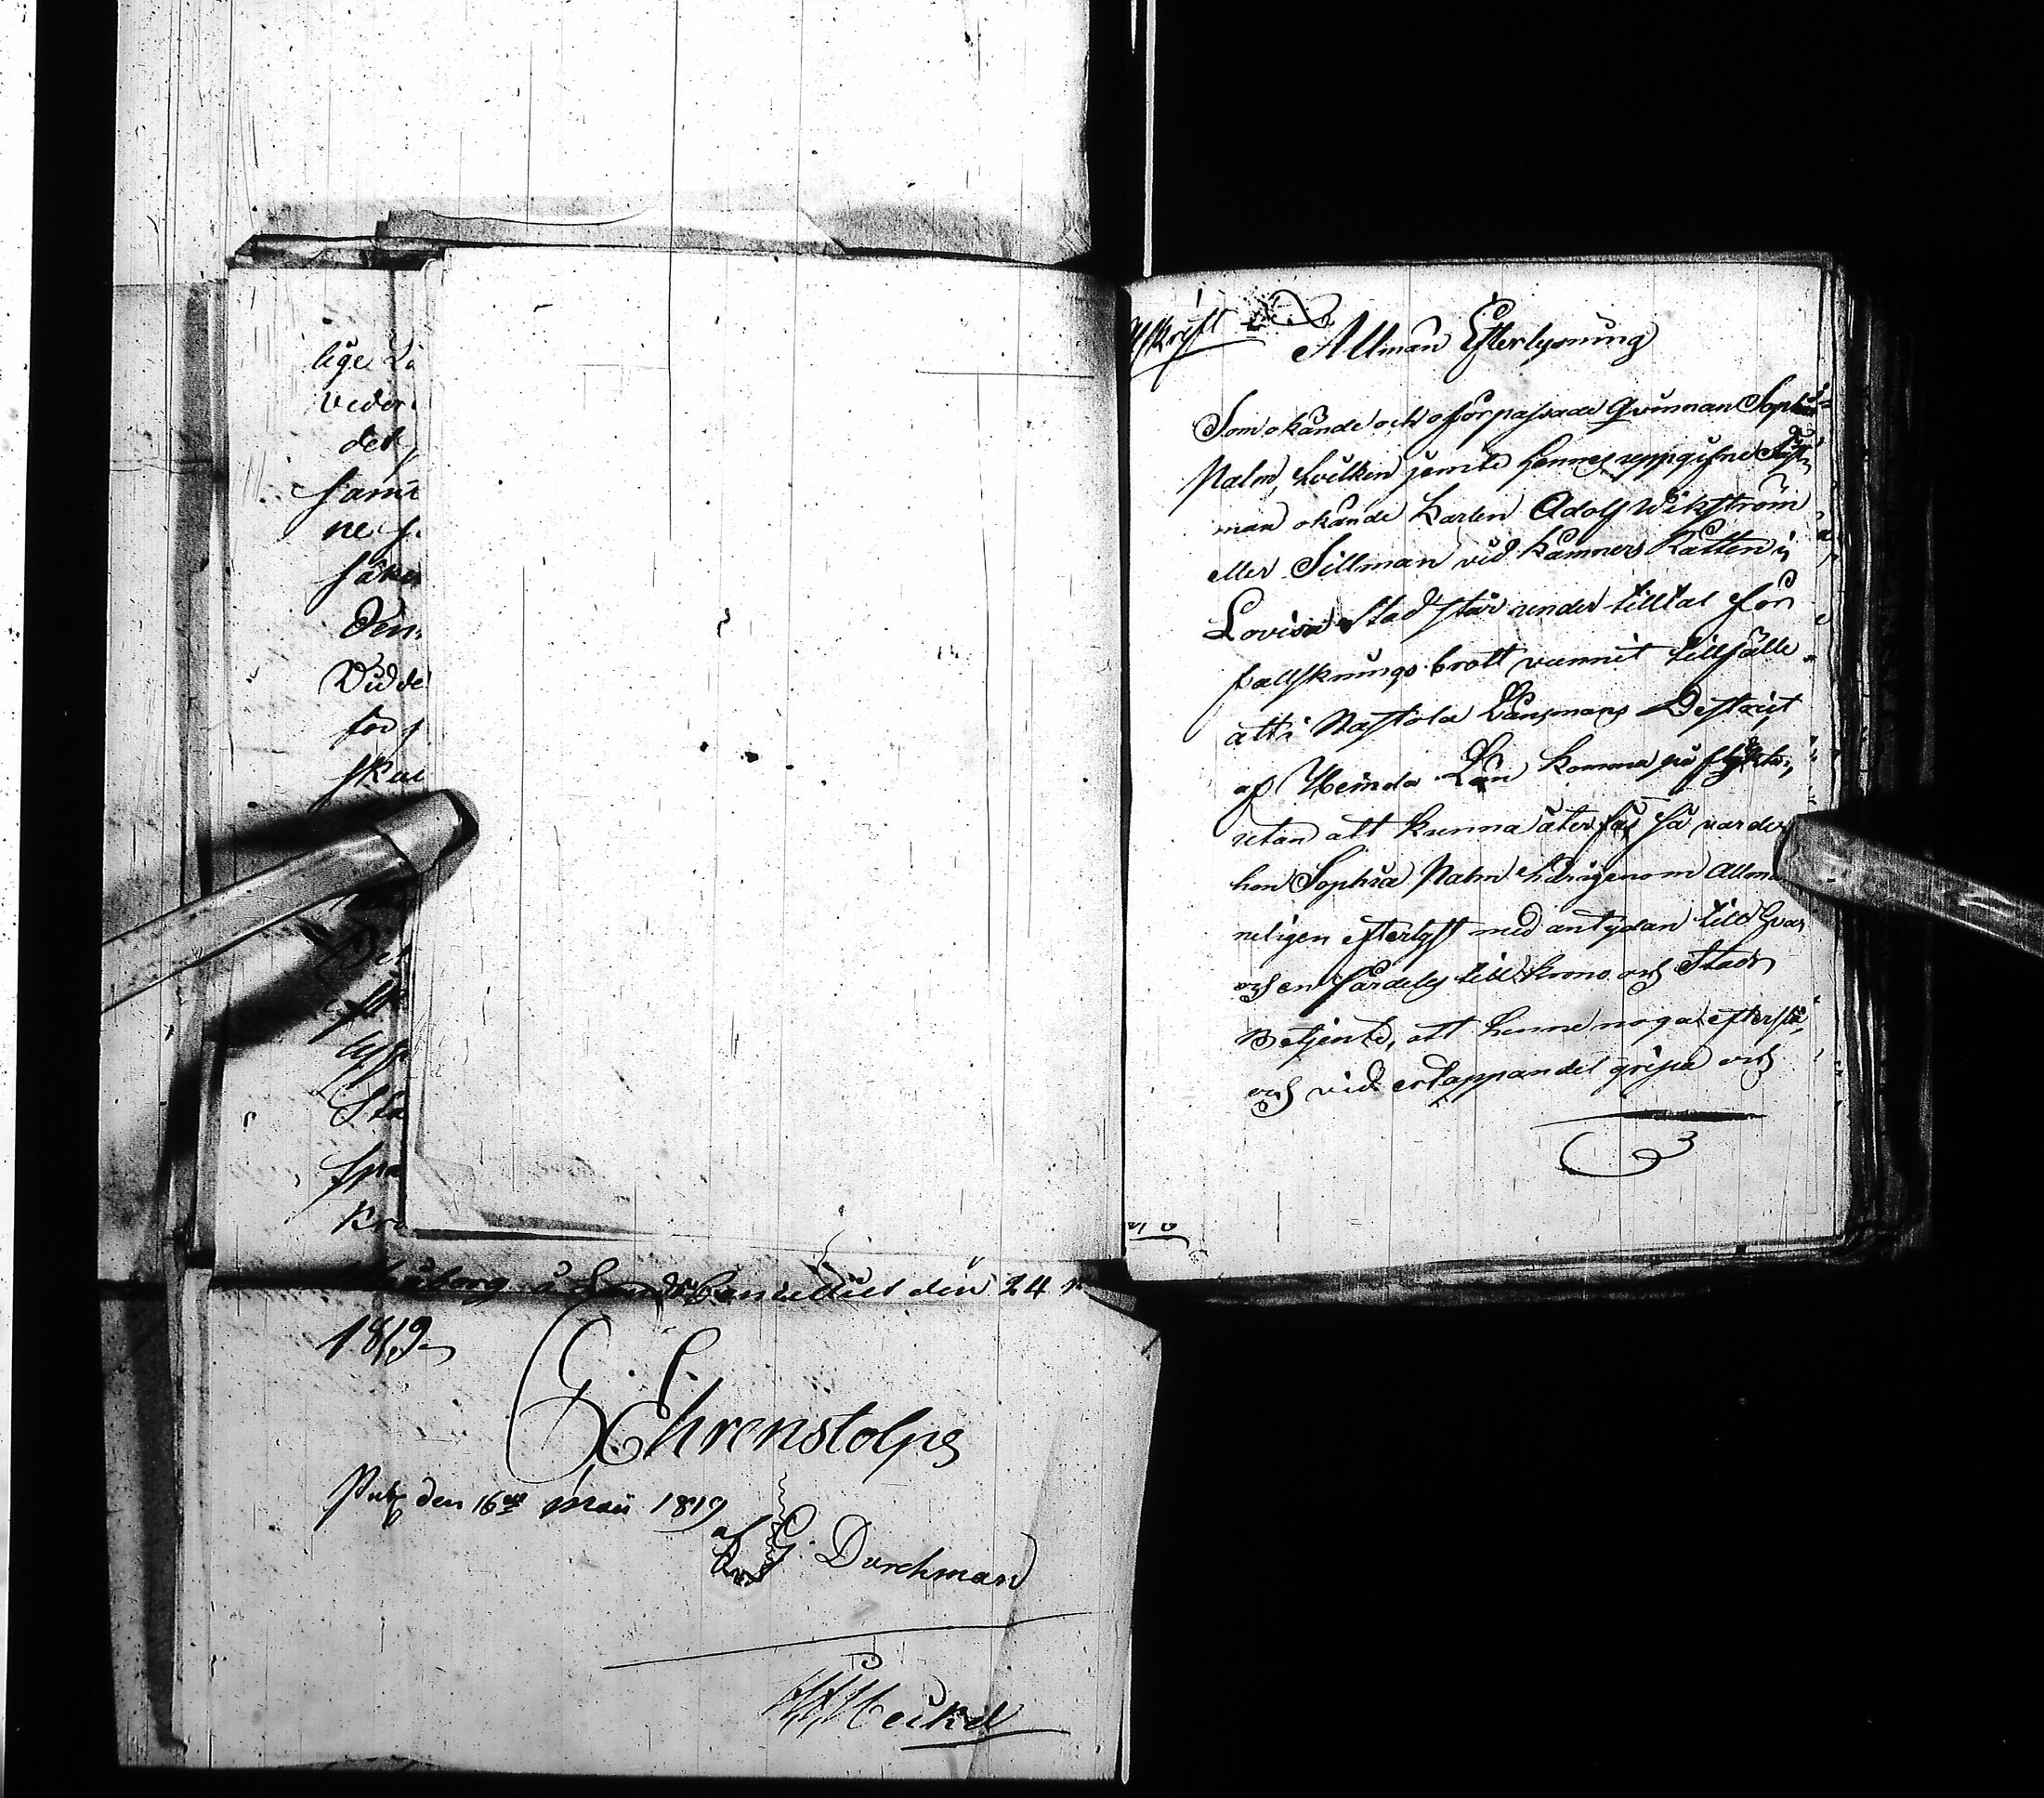 lige Lä
veder
det
samt
ne
säke
Den
Vid de
för
skul
Det
Sta
spa
Kro
å Lands Cancelliet den 24
1819
G. Ehrenstolpe
Publ den 16de Maii 1819
G. Durchman
Heikel
Afskrift
Allmän Efterlysning
Som okände och oförpassade Qvinnan Sophia
Palm, hvilken jemte hennes uppgifne Fäst-
man okände Karlen Adolf Wikström
eller Sillman vid Kämners Rätten i
Lovisa Stad står under tilltal för
falsknings brott vunnit tillfälle
att i Nastola Länsmans District
af Heinola Län komma på flykten,
utan att kunna återfås så varder
hon Sophia Palm härigenom Allmän-
neligen efterlyst med antydan till hvar
och en särdeles till Krono och Stads
Betjente, att henne noga efterslå,
och vid ertappandet gripa och